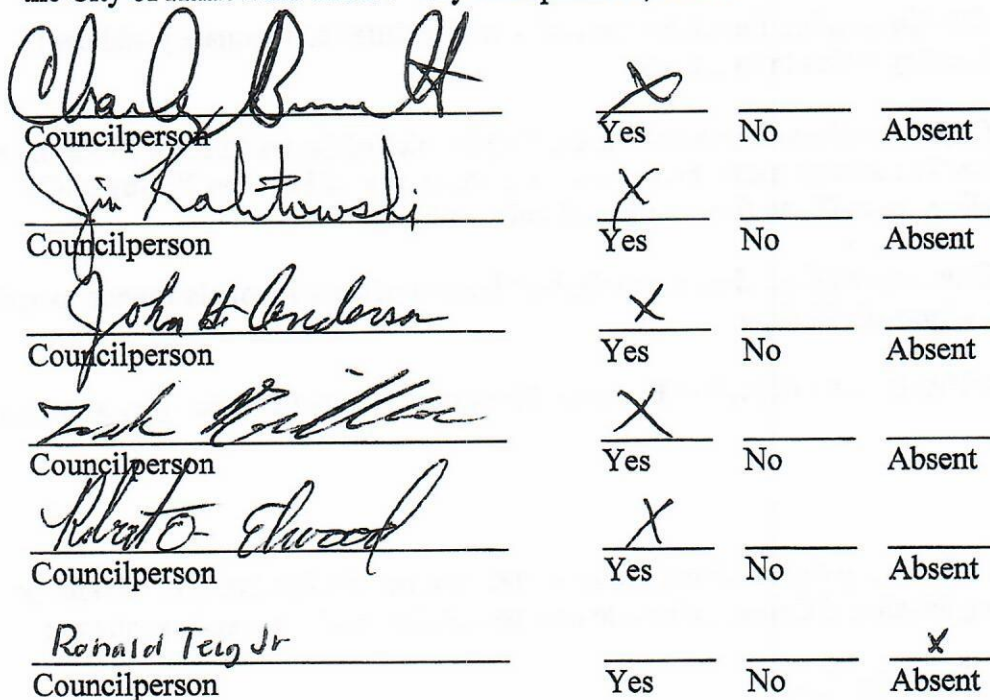 the City
Charles Bennett X
Councilperson Yes No Absent
Jim Kalitowski X
Councilperson Yes No Absent
John H. Anderson X
Councilperson Yes No Absent
X
Councilperson Yes No Absent
Robert O Elwood X
Councilperson Yes No Absent
Ronald Teig Jr X
Councilperson Yes No Absent